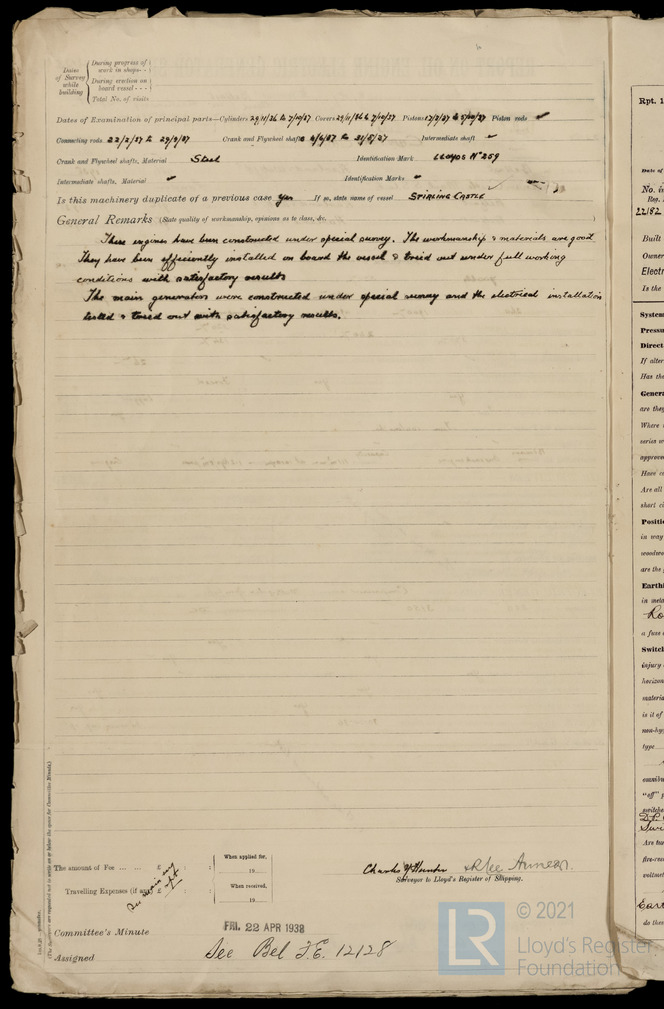 Dates of Survey while building
During progress of work in shops - -
During erection on board vessel - - -
Total No. of visits
Dates of Examination of principal parts—Cylinders 29/11/36 to 7/10/37 Covers 29/11/36 to 7/10/37 Pistons 17/2/37 to 5/10/37 Piston rods ✓
Connecting rods 22/2/37 to 29/9/37 Crank and Flywheel shafts 8/6/37 to 31/8/37 Intermediate shaft ✓
Crank and Flywheel shafts, Material Steel Identification Mark LLOYDS Nº 259
Intermediate shafts, Material ✓ Identification Marks ✓
Is this machinery duplicate of a previous case Yes If so, state name of vessel STIRLING CASTLE
General Remarks (State quality of workmanship, opinions as to class, &c.
These engines have been constructed under special survey. The workmanship & materials are good
They have been efficiently installed on board the vessel & tried out under full working
conditions with satisfactory results
The main generators were constructed under special survey and the electrical installation
tested & tried out with satisfactory results.
The amount of Fee ... ... £ : :
Travelling Expenses (if any) £ : :
When applied for,
19
When received,
19
Charles Hunter & R. Lee Amness.
Surveyor to Lloyd's Register of Shipping.
Committee's Minute FRI. 22 APR 1938
Assigned See Bel F.E. 12128
(The Surveyors are requested not to write on or below the space for Committee Minute.)
© 2021
Lloyd's Register
Foundation
LR
Rpt. 1
Date of
No. i
Reg.
22182
Built
Owner
Electr
Is the
System
Pressu
Direct
If alter
Has the
Genera
are they
Where
series w
approve
Have
Are all
short ci
Positi
in way
woodwo
are the
Earthi
in meta
a fuse
Switch
injury
horizon
materia
is it of
non-hy
type
omnibu
"off" p
switche
Are tu
fire-res
voltmet
do thes